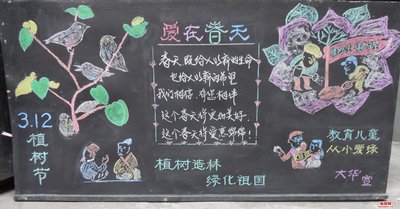 爱在春天
春天既给人以新的生命
也给人以新的希望
我们相信
这个春天将更加美好
这个春天将更
3.12
植树节
植树造林
绿化祖国
教育儿童
从小爱绿
大华宣